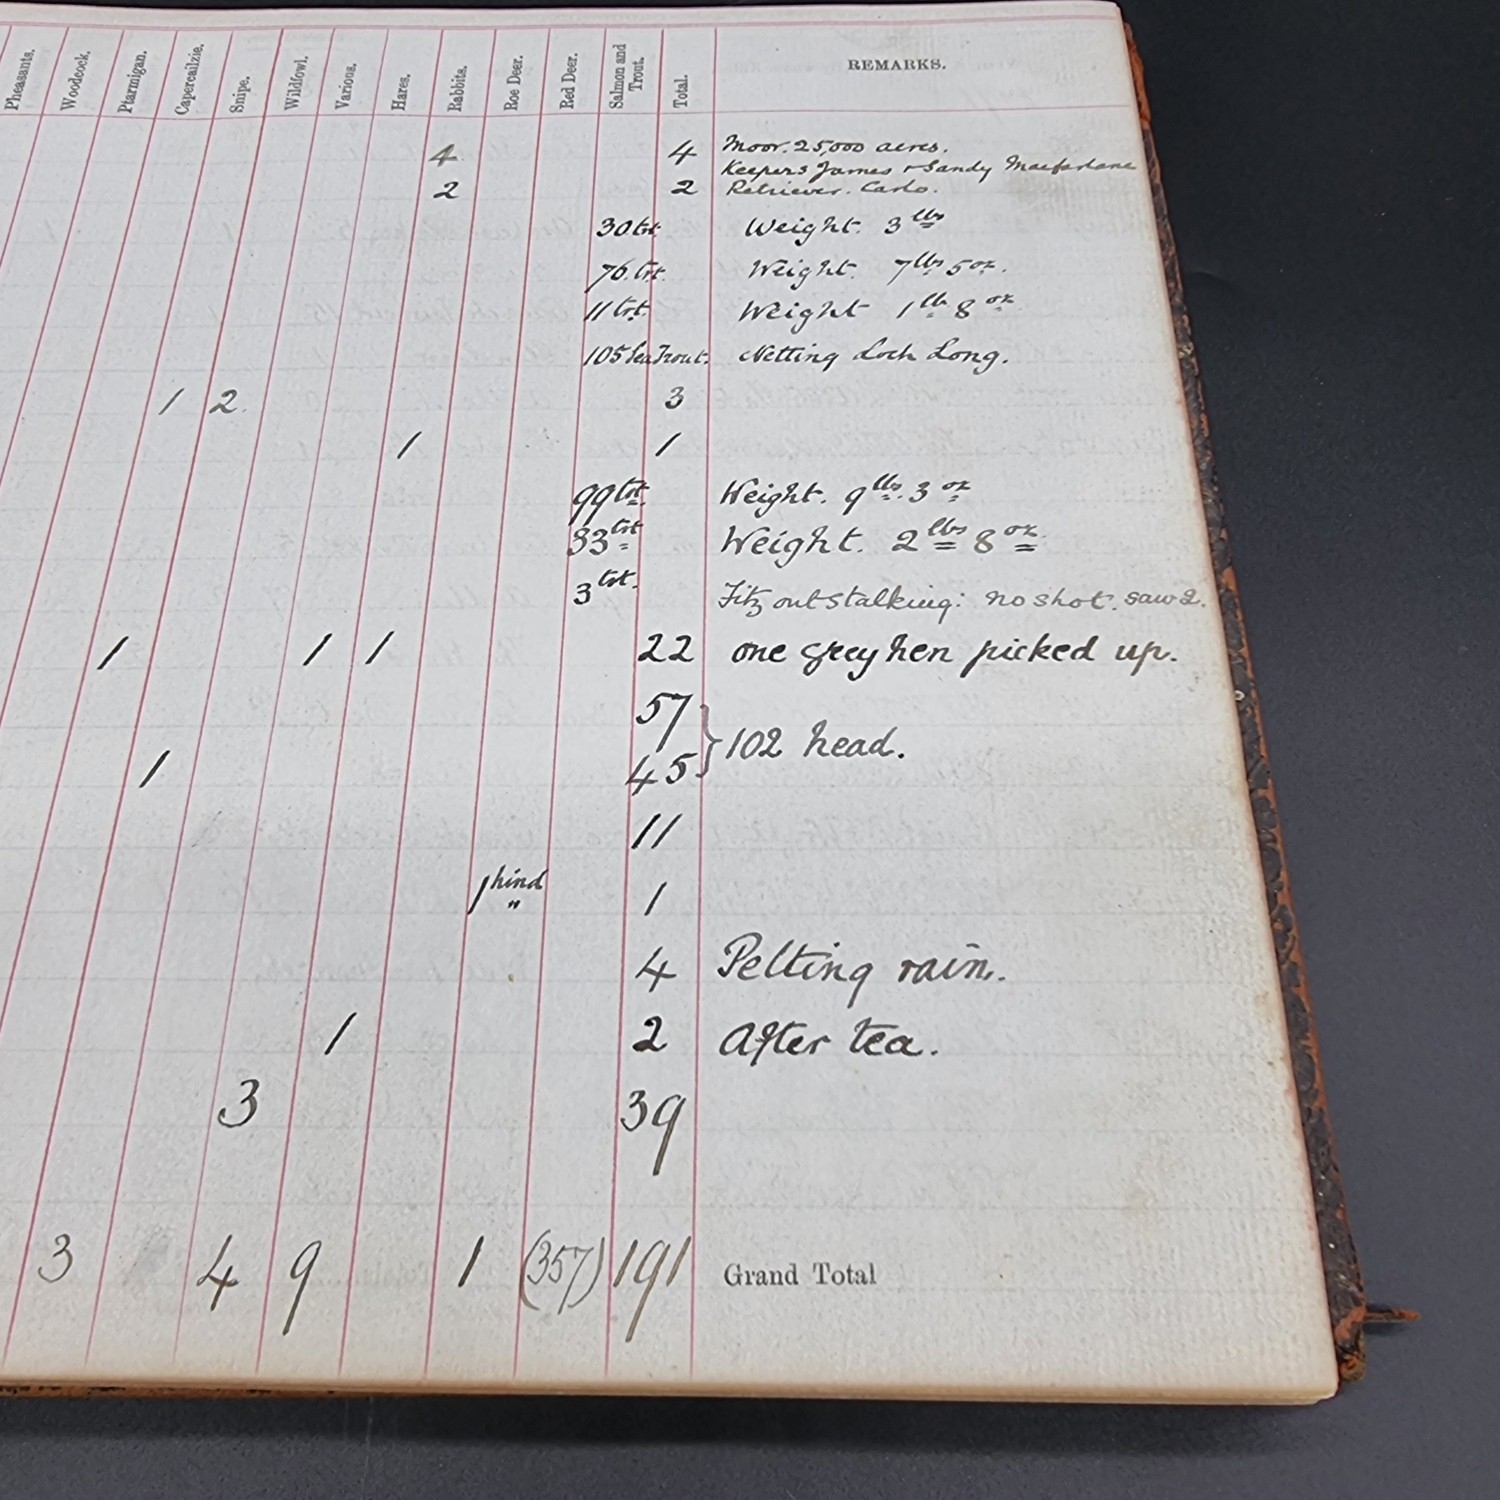 Pheasants. Woodcock. Ptarmigan. Capercailzie. Snipe. Wildfowl. Various. Hares. Rabbits. Roe Deer. Red Deer. Salmon and Trout. Total. REMARKS.
4 4 Moor. 25,000 acres.
Keepers James & Sandy Macfarlane
2 2 Retriever. Carlo.
30 trt. Weight. 3 lbs
76. trt. Weight. 7 lbs 5 oz.
11 trt. Weight 1 lb 8 oz
105 Sea Trout. Netting Loch Long.
1 2. 3
1 1
99 trt. Weight. 9 lbs. 3 oz
33 trt Weight. 2 lbs 8 oz.
3 trt. Fitz out stalking: no shot. saw 2.
1 1 1 22 one grey hen picked up.
57
} 102 head.
1 45
11
1 hind " 1
4 Pelting rain.
1 2 After tea.
3 39
3 4 9 1 (357) 191 Grand Total